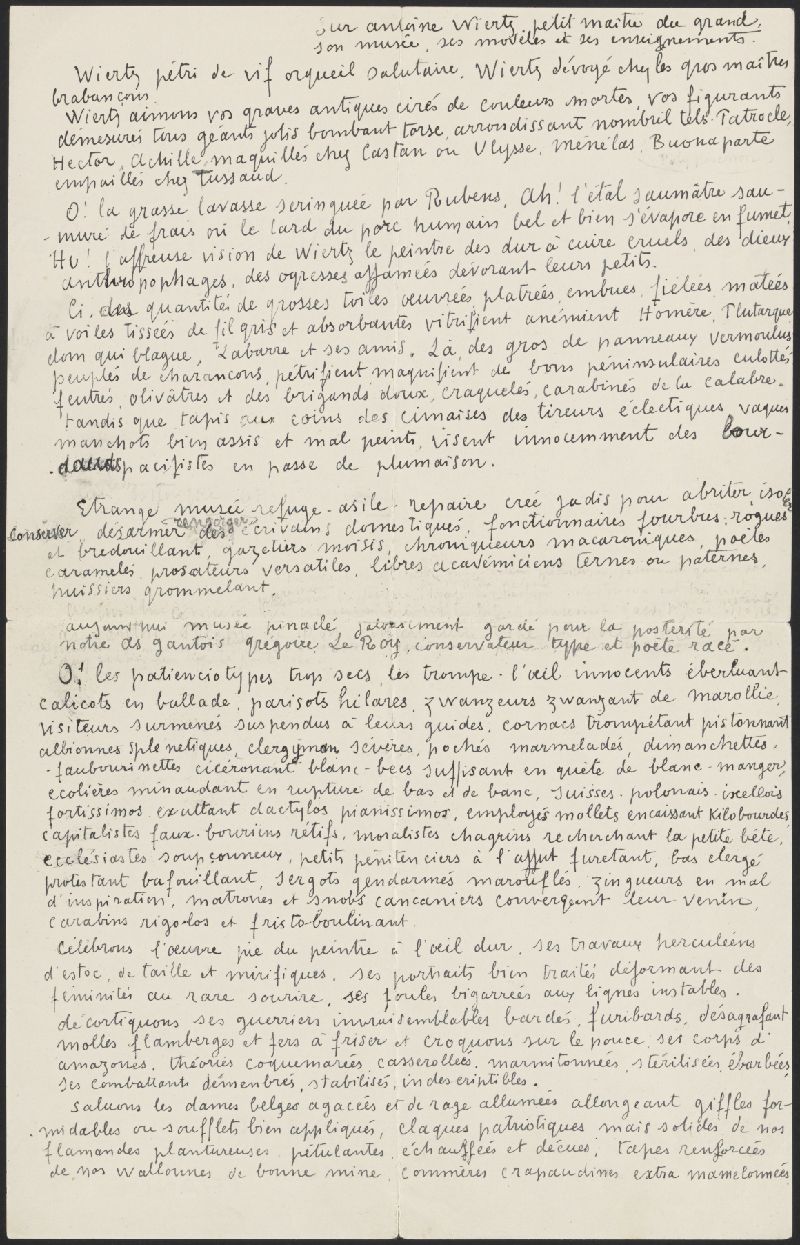 Sur antoine Wiertz petit maitre du grand,
son musée, ses modèles et ses enseignements.
Wiertz pétri de vif orgueil salutaire. Wiertz dévoyé chez les gros maîtres
brabançons.
Wiertz aimons vos graves antiques cirés de couleurs mortes, vos figurants
démesurés tous géants jolis bombant torse, arrondissant nombril tels Patrocle,
Hector, Achille maquillés chez Castan ou Ulysse, Ménélas, Buonaparte
empaillés chez Tussaud.
O! la grasse lavasse seringuée par Rubens, Ah! l'étal saumâtre sau-
-muré de frais où le lard du porc humain bel et bien s'évapore en fumet,
Hu! l'affreuse vision de Wiertz le peintre des dur à cuire cruels, des dieux
anthropophages, des ogresses affamées dévorant leurs petits.
Ci, des quantités de grosses toiles oeuvrées, platrées, embues, fielées, matées
à voiles tissées de fil gris et absorbantes vitrifient anémient Homère, Plutarque
dom qui blague, Labarre et ses amis. Là, des gros de panneaux vermoulus
peuplés de charançons, pétrifient, magnifient de bons péninsulaires culottés
feutrés, olivâtres et des brigands doux, craquelés, carabinés de la calabre.
tandis que tapis aux coins des cimaises des tireurs éclectiques, vagues
manchots bien assis et mal peints, visent innocemment des lour-
dauds pacifistes en passe de plumaison.
Etrange musée refuge - asile - repaire créé jadis pour abriter, isoler
conserver, désarmer, rengorger des écrivains domestiqués, fonctionnaires fourbus, rogues
et bredouillant, gazetiers moisis, chroniqueurs macaroniques, poètes
caramélés, prosateurs versatiles, libres académiciens ternes ou paternes,
huissiers grommelant.
aujourd'hui musée pinaclé jalousement gardé pour la postérité par
notre as gantois grégoire Le Roy, conservateur type et poète racé.
O! les patienciotypes trop secs, les trompe-l'œil innocents éberluant
calicots en ballade, parigots hilares, zwanzeurs zwanzant de marollie,
visiteurs surmenés suspendus à leurs guides, cornacs trompétant pistonnant
albionnes splenétiques, clergyman sévères, pochés marmeladés, dimanchettes-
-faubourinettes cicéronant blanc-becs suffisant en quête de blanc-manger,
écolières minaudant en rupture de bas et de banc, suisses-polonais-ixellois
fortissimos exultant dactylos pianissimos, employés mollets encaissant kilobourdes,
capitalistes faux-bourins rétifs, moralistes chagrins recherchant la petite bête,
ecclésiastes soupçonneux, petits pénitenciers à l'affut furetant, bas clergé
protestant bafouillant, sergots gendarmés marouflés, zingueurs en mal
d'inspiration, matrones et snobs cancaniers convergeant leur venin,
carabins rigolos et fristo-boulinant.
Célébrons l'œuvre pie du peintre à l'œil dur, ses travaux herculéens
d'estoc, de taille et mirifiques, ses portraits bien traités déformant des
féminités au rare sourire, ses foules bigarrées aux lignes instables.
décortiquons ses guerriers invraisemblables bardés, furibards, désagrafant
molles flamberges et fers à friser et croquons sur le pouce, ses corps d'
amazones, théories coquemarées casserollées, marmitonnées, stérilisées, ébarbées,
ses combattants démembrés, stabilisés, indescriptibles.
Saluons les dames belges agacées et de rage allumées allongeant giffles for-
midables ou soufflets bien appliqués, claques patriotiques mais solides de nos
flamandes plantureuses, pétulantes, échauffées et déçues, tapes renforcées
de nos wallonnes de bonne mine, commères crapaudines extra mamelonnées